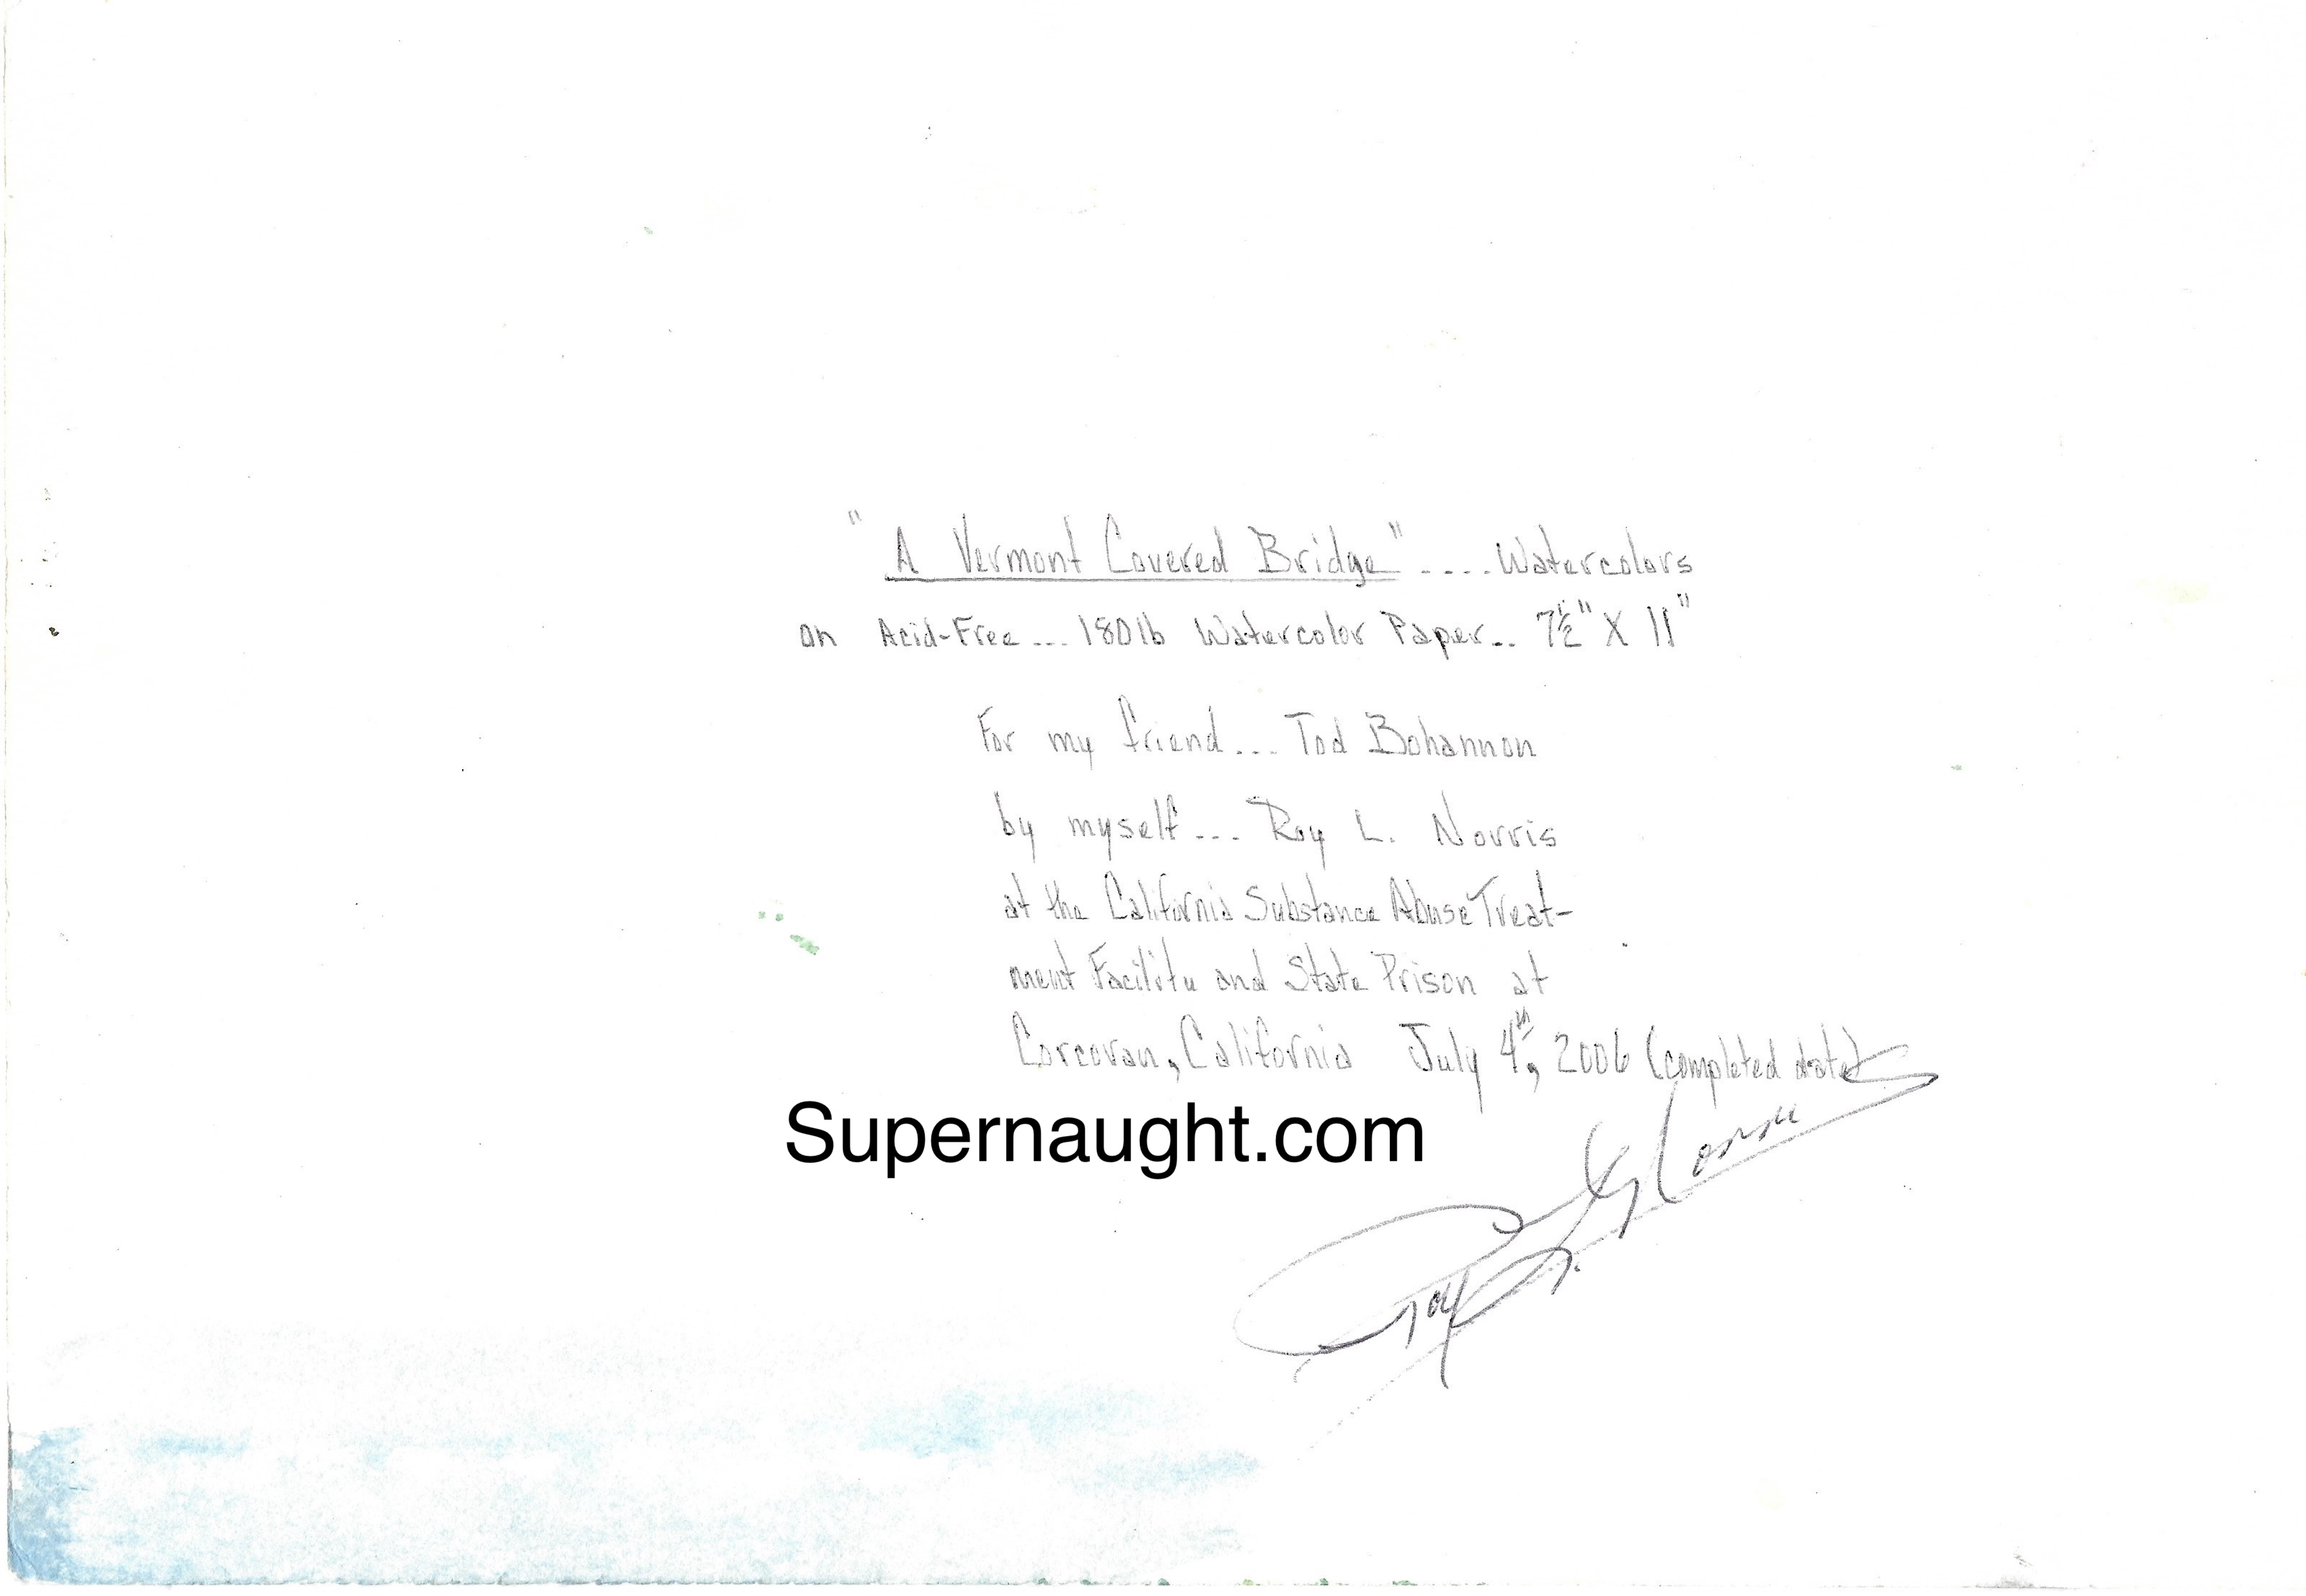 "A Vermont Covered Bridge".... Watercolors
on Acid-Free... 180lb Watercolor Paper.. 7½" X 11"
For my friend... Tod Bohannon
by myself... Roy L. Norris
at the California Substance Abuse Treat-
ment Facility and State Prison at
Corcoran, California July 4th, 2006 (completed date)
Supernaught.com
Roy L. Norris